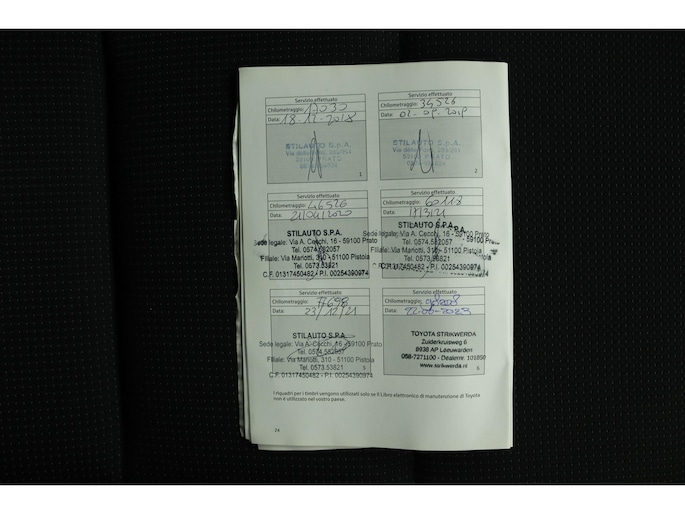 Servizio effettuato
Chilometraggio: 17030
Data: 18-12-2018
STILAUTO S.p.A.
1
Servizio effettuato
Chilometraggio: 34526
Data: 02-09-2019
STILAUTO S.p.A.
2
Servizio effettuato
Chilometraggio: 46526
Data: 21/04/2020
STILAUTO S.P.A.
Sede legale: Via A. Cecchi, 16 - 59100 Prato
Tel. 0574.582057
Filiale: Via Mariotti, 310 - 51100 Pistoia
Tel. 0573.53821
C.F. 01317450482 - P.I. 00254390974
Servizio effettuato
Chilometraggio: 60118
Data:
S.P.A.
Sede legale: Via A. Cecchi, 16 - 59100 Prato
Tel. 0574.582057
Filiale: Via Mariotti, 310 - 51100 Pistoia
Tel. 0573.53821
C.F. 01317450482 - P.I. 00254390974
Servizio effettuato
Chilometraggio: 77698
Data: 23/12/21
STILAUTO S.P.A.
Sede legale: Via A. Cecchi, 16 - 59100 Prato
Tel. 0574.582057
Filiale: Via Mariotti, 310 - 51100 Pistoia
Tel. 0573.53821
C.F. 01317450482 - P.I. 00254390974
5
Servizio effettuato
Chilometraggio:
Data: 22-06-2023
TOYOTA STRIKWERDA
Zuiderkruisweg 6
8938 AP Leeuwarden
058-7271100 - Dealernr. 101850
www.strikwerda.nl
6
I riquadri per i timbri vengono utilizzati solo se il Libro elettronico di manutenzione di Toyota
non è utilizzato nel vostro paese.
24